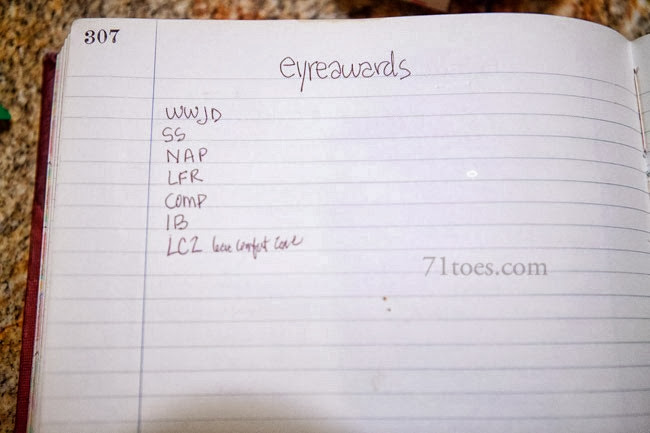 307
eyreawards
WWJD
SS
NAP
LFR
COMP
IB
LCZ leave comfort zone
71toes.com